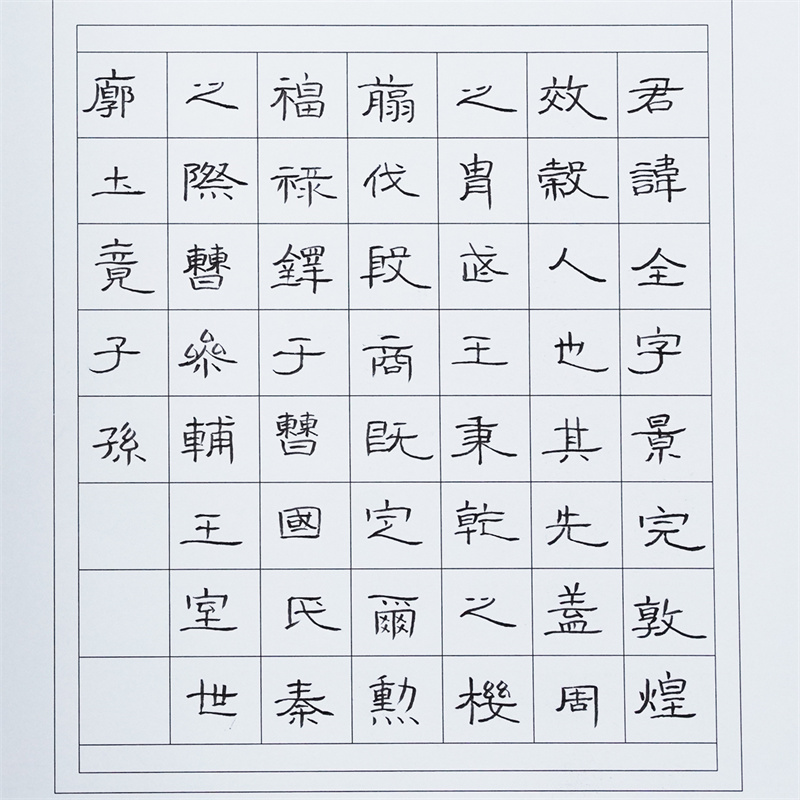 君諱全字景完敦煌
效穀人也其先蓋周
之胄武王秉乾之機
翦伐殷商既定爾勳
福祿鐸于曹國氏秦
之際曹參輔王室世
廓土竟子孫